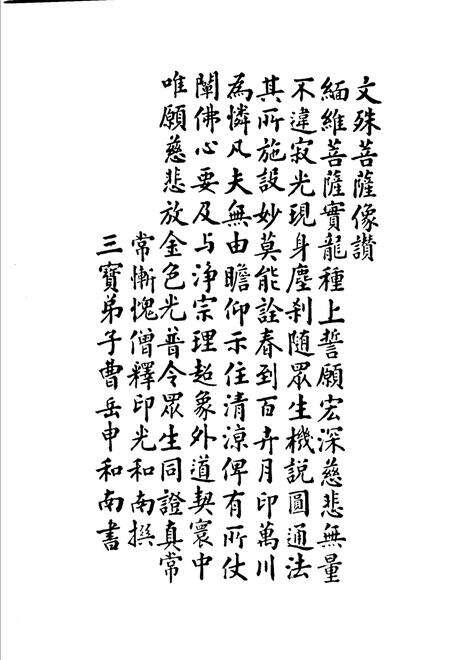 文殊菩薩像讚
緬維菩薩實龍種上誓願宏深慈悲無量
不違寂光現身塵刹随眾生機說圓通法
其所施設妙莫能詮春到百卉月印萬川
為憐凡夫無由瞻仰示住清涼俾有所仗
闡佛心要及与淨宗理超象外道契寰中
唯願慈悲放金色光普令眾生同證真常
常慚愧僧釋印光和南撰
三寶弟子曹岳申和南書